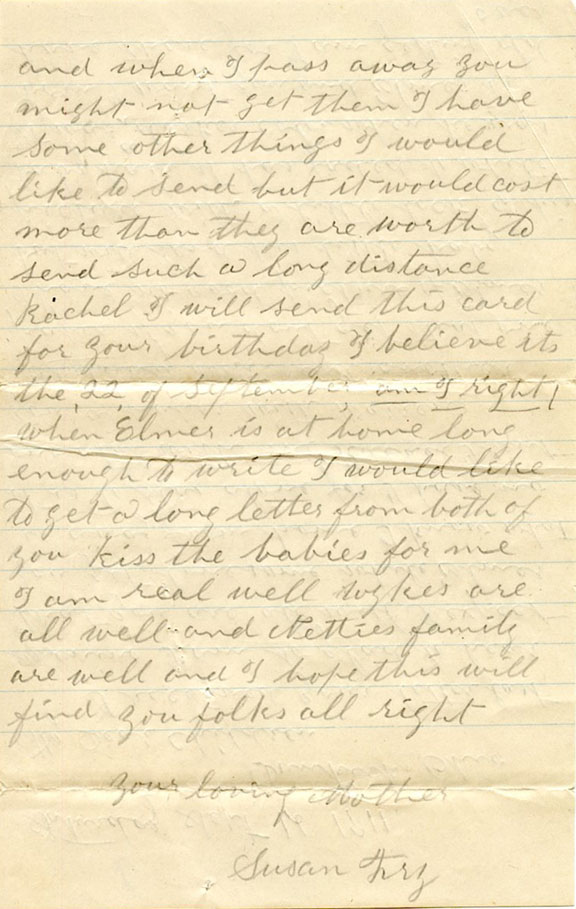 and when I pass away you
might not get them I have
some other things I would
like to send but it would cost
more than they are worth to
send such a long distance
Rachel I will send this card
for your birthday I believe its
the 22 of September am I right
when Elmer is at home long
enough to write I would like
to get a long letter from both of
you kiss the babies for me
I am real well Wykes are
all well and Netties family
are well and I hope this will
find you folks all right
your loving Mother
Susan Fry